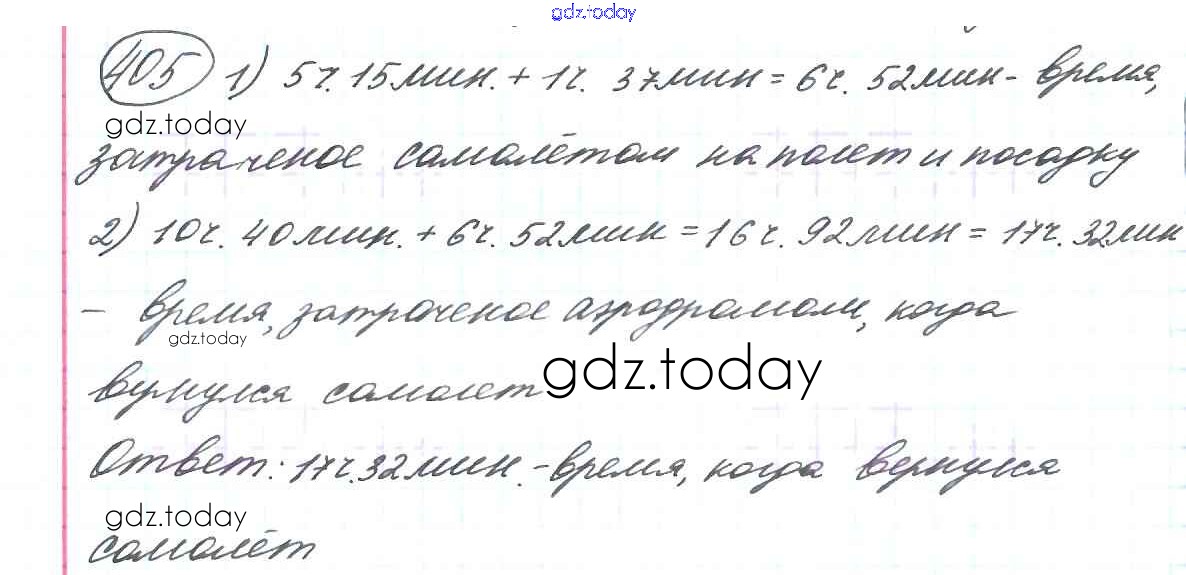 gdz.today
405 1) 5ч. 15мин. + 1ч. 37мин = 6ч. 52мин - время,
gdz.today
затраченое самолётом на полет и посадку
2) 10ч. 40мин. + 6ч. 52мин = 16ч. 92мин = 17ч. 32мин
- время, затраченое аэродромом, когда
gdz.today
вернулся самолет
gdz.today
Ответ: 17ч. 32мин. - время, когда вернулся
gdz.today
самолёт